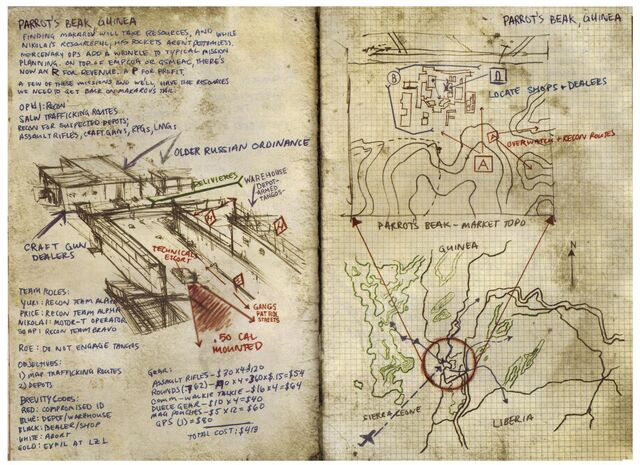 PARROT'S BEAK, GUINEA
FINDING MAKAROV WILL TAKE RESOURCES, AND WHILE
NIKOLAI'S RESOURCEFUL, HIS POCKETS AREN'T BOTTOMLESS.
MERCENARY OPS ADD A WRINKLE TO TYPICAL MISSION
PLANNING. ON TOP OF EMPCOA OR GSMEAC, THERE'S
NOW AN R FOR REVENUE. A P FOR PROFIT.
A FEW OF THESE MISSIONS AND WE'LL HAVE THE RESOURCES
WE NEED TO GET BACK ON MAKAROV'S TAIL.
OP#1: RECON
SALW TRAFFICKING ROUTES
RECON FOR SUSPECTED DEPOTS;
ASSAULT RIFLES, CRAFT GUNS, RPGS, LMGS
OLDER RUSSIAN ORDINANCE
DELIVERIES
WAREHOUSE
DEPOT-
ARMED
TANGOS
CRAFT GUN
DEALERS
TECHNICALS
ESCORT
GANGS
PATROL
STREETS
.50 CAL
MOUNTED
TEAM ROLES:
YURI: RECON TEAM ALPHA
PRICE: RECON TEAM ALPHA
NIKOLAI: MOTOR-T OPERATOR
SOAP: RECON TEAM BRAVO
ROE: DO NOT ENGAGE TANGOS
OBJECTIVES:
1) MAP TRAFFICKING ROUTES
2) DEPOTS
BREVITY CODES:
RED: COMPROMISED ID
BLUE: DEPOT/WAREHOUSE
BLACK: DEALER/SHOP
WHITE: ABORT
GOLD: EVAC AT LZ1
GEAR:
ASSAULT RIFLES-$30 X 4 $120
ROUNDS (7.62)- X 4=360 X $.15=$54
COMM-WALKIE TALKIE-$16 X 4=$64
DUECE GEAR-$10 X 4=$40
MAG POUCHES-$5 X 12=$60
GPS (1)=$80
TOTAL COST: $418
PARROT'S BEAK, GUINEA
B
LOCATE SHOPS + DEALERS
A
A
OVERWATCH + RECON ROUTES
PARROT'S BEAK - MARKET TOPO
GUINEA
N
SIERRA LEONE
LIBERIA